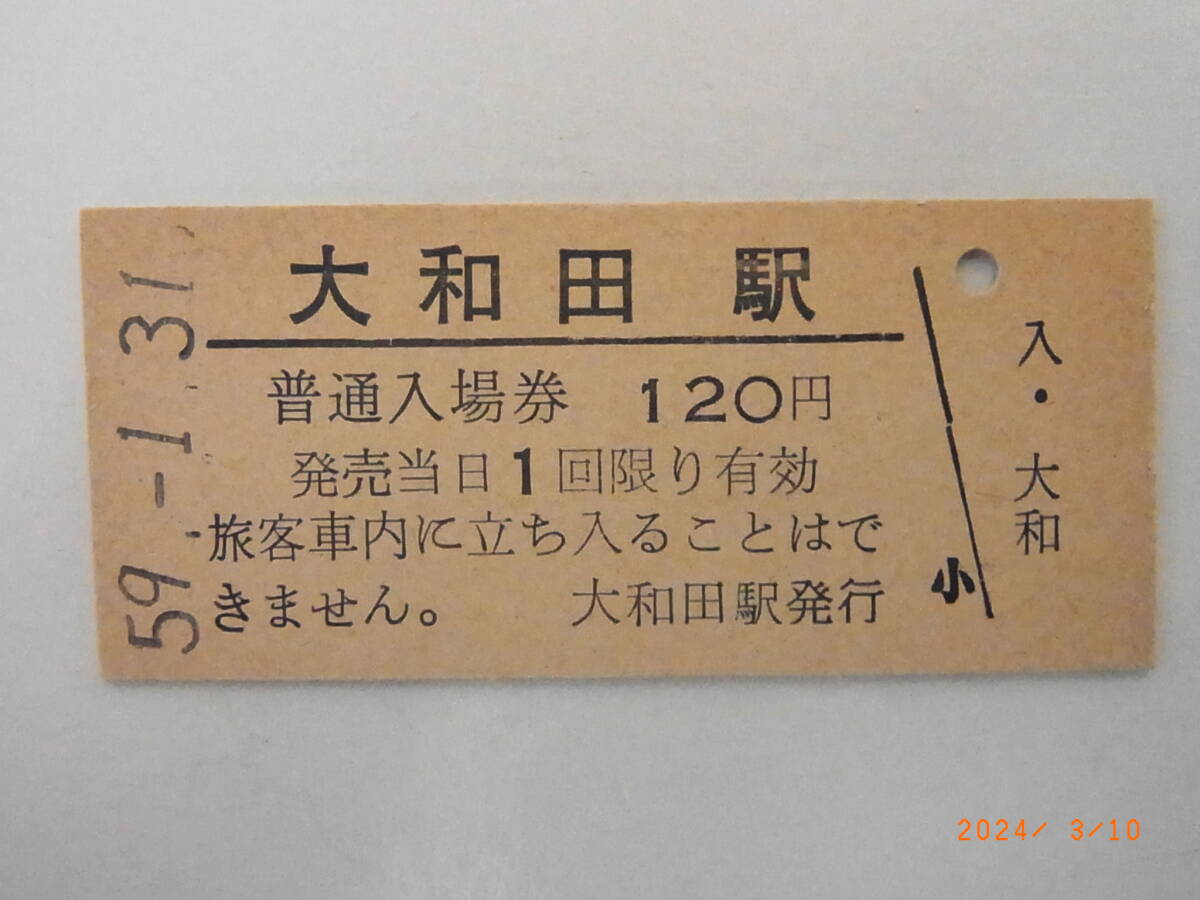 大和田駅
普通入場券 120円
発売当日1回限り有効
旅客車内に立ち入ることはで
きません。 大和田駅発行
小
入・大和
59-1.31
2024/ 3/10